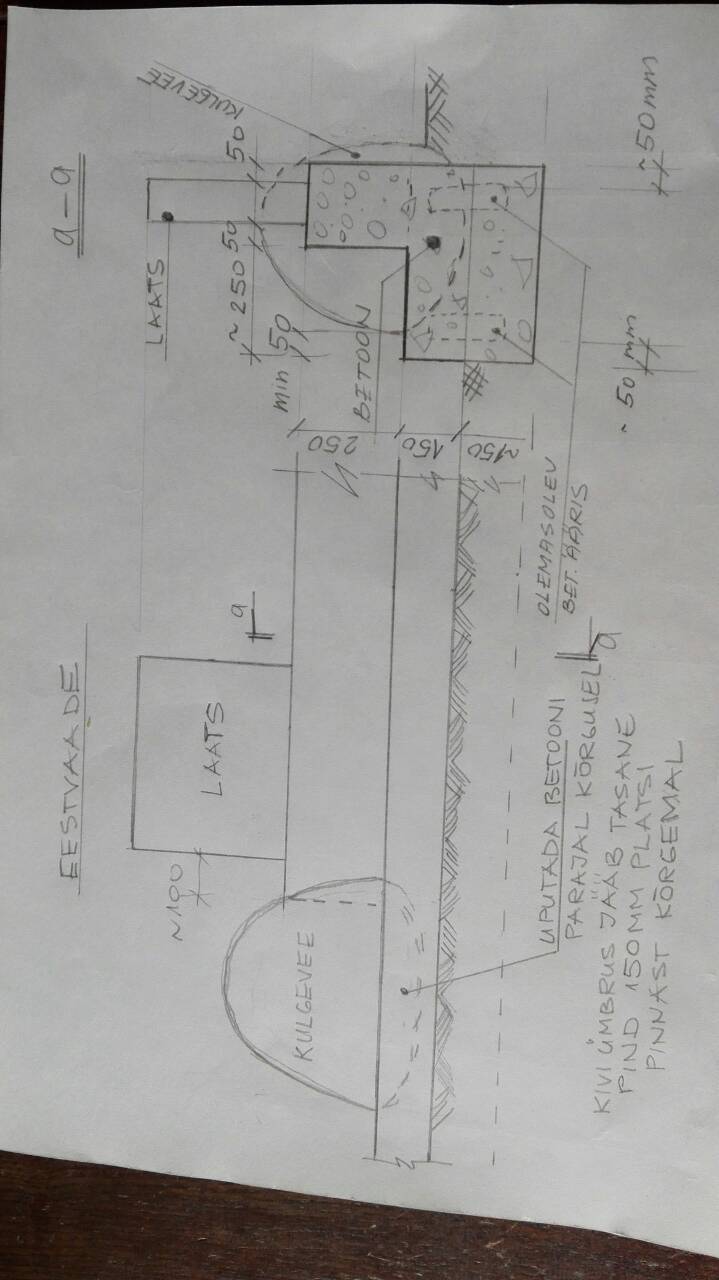 EESTVAADE
a-a
LAATS
~100
LAATS
a
KULGEVEE
KULGEVEE
50
50
~250
50
min
BETOON
250
150
~150
~50mm
~50 mm
OLEMASOLEV
BET. ÄÄRIS
a
UPUTADA BETOONI
PARAJAL KÕRGUSEL
KIVI ÜMBRUS JÄÄB TASANE
PIND 150MM PLATSI
PINNAST KÕRGEMAL